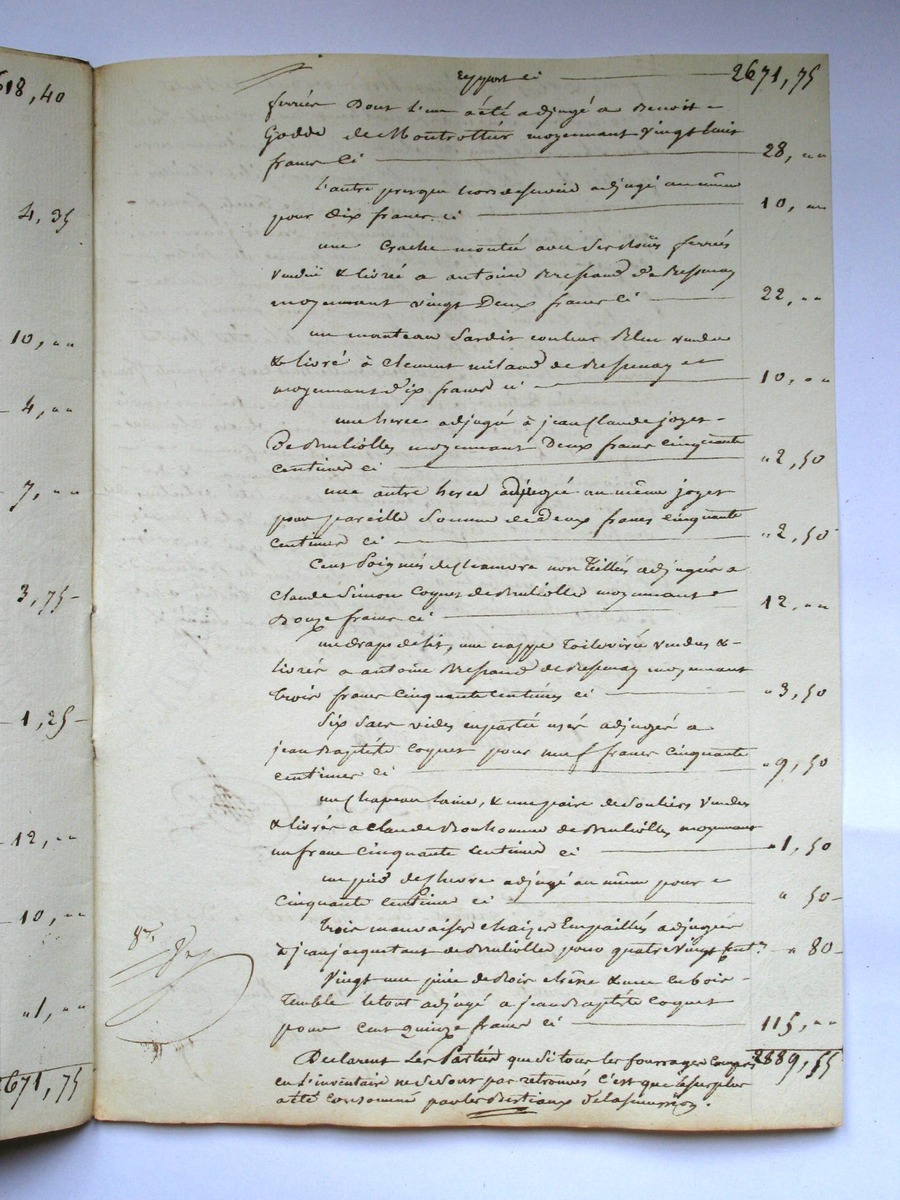 618,40
4,35
10,""
4,""
7,""
3,75
1,25
12,""
10,""
"1,""
2671,75
Report ci 2671,75
ferrées Dont l'une a été adjugé a Benoit
Godde de Montrottier moyennant vingt huit
francs Ci 28,""
L'autre presque hors de service adjugé au même
pour dix francs ci 10,""
une Crache montée avec ferrées
vendue & livrée a antoine Bressand de Bessenay
moyennant vingt Deux francs Ci 22,""
un manteau Sardis couleur Bleu vendu
& livré à Clement miland de Bessenay
moyennant dix francs ci 10,""
une herce adjugé à jean Claude joyet
De Brulliolles moyennant Deux francs Cinquante
Centimes ci "2,50
une autre herce adjugée au même joyet
pour pareille Somme de Deux francs Cinquante
Centimes Ci "2,50
Cent Poignés de Chanvre non Tillés adjugée a
Claude Simon Coquet de Brulliolle moyennant
Douze francs Ci 12,""
un draps de lit, une nappe vendus &
livrés a antoine Bressand de Bessenay moyennant
trois francs Cinquante Centimes Ci "3,50
Six Sacs vides en partie usés adjugés a
jean Baptiste Coquet pour neuf francs Cinquante
Centimes Ci "9,50
un Chapeau laine, & une paire de Souliers vendus
& livrés a Claude Bonhomme de Brulliolles moyennant
un franc Cinquante Centimes ci "1,50
un pied de adjugé au même pour
Cinquante Centimes Ci " 50
trois mauvaises Chaizes Empaillés adjugées
à jean jacques de Brulliolle pour quatre vingt Cent.s " 80
Vingt une pièce de Bois chêne & une en bois
Tremble le tout adjugé a jean Baptiste Coquet
pour Cent quinze francs Ci 115,""
Declarent Les Parties que Si tous les fourrages Compris 2889,55
en L'inventaire ne Se Sont pas retrouvés C'est que le Surplus
a été Consommé par les Bestiaux De la Succession.